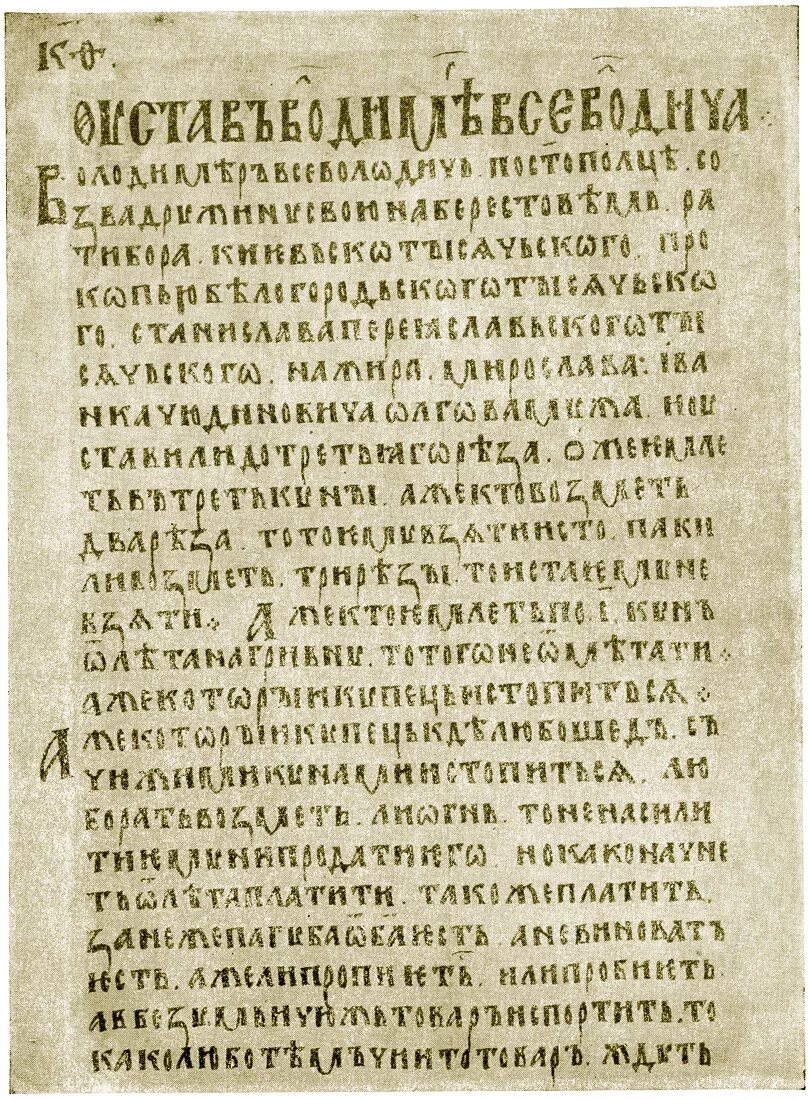 К҃Ѳ.
Оуставъ во̑димѣ всево̑дича
Володимѣръ всеволѡдичь. по ст҃ополцѣ. со
зва дружину свою на берестовѣмь. ра
тибора. киевьскѡ тысѧчьскѡго. про
кѡпью бѣлогородьскѡгѡ тысѧчьскѡ
го. станислава переꙗславьскогѡ ты
сѧчьскогѡ. нажира. мирослава: іва
нка чюдиновича ѡлгова мужа. и оу
ставили до третьꙗгѡ рѣза. ѡже ѥмле
ть въ треть куны. аже кто возметь
два рѣза. то то ѥму взѧти исто. паки
ли возметь. три рѣзы. то иста ѥму не
взѧти ⁘ Аже кто ѥмлеть по. і҃. кунъ
ѿ лѣта на гривну. то тогѡ не ѿмѣтати ⁘
аже котѡрыи купець истопитьсѧ ⁘
Аже котѡрыи купець кдѣ любо шедъ. съ
чюжими кунами истопитьсѧ. лю
бо рать возметь. ли ѡгнь. то не насили
ти ѥму ни продати ѥгѡ. но како начне
ть ѿ лѣта платити. тако же платить.
зане же пагуба ѿ б҃а ѥсть. а не виноватъ
ѥсть. аже ли пропиѥть. или пробиѥть
а в безумьи чюжь товаръ испортить. то
како любо тѣмъ чии то товаръ. ждуть